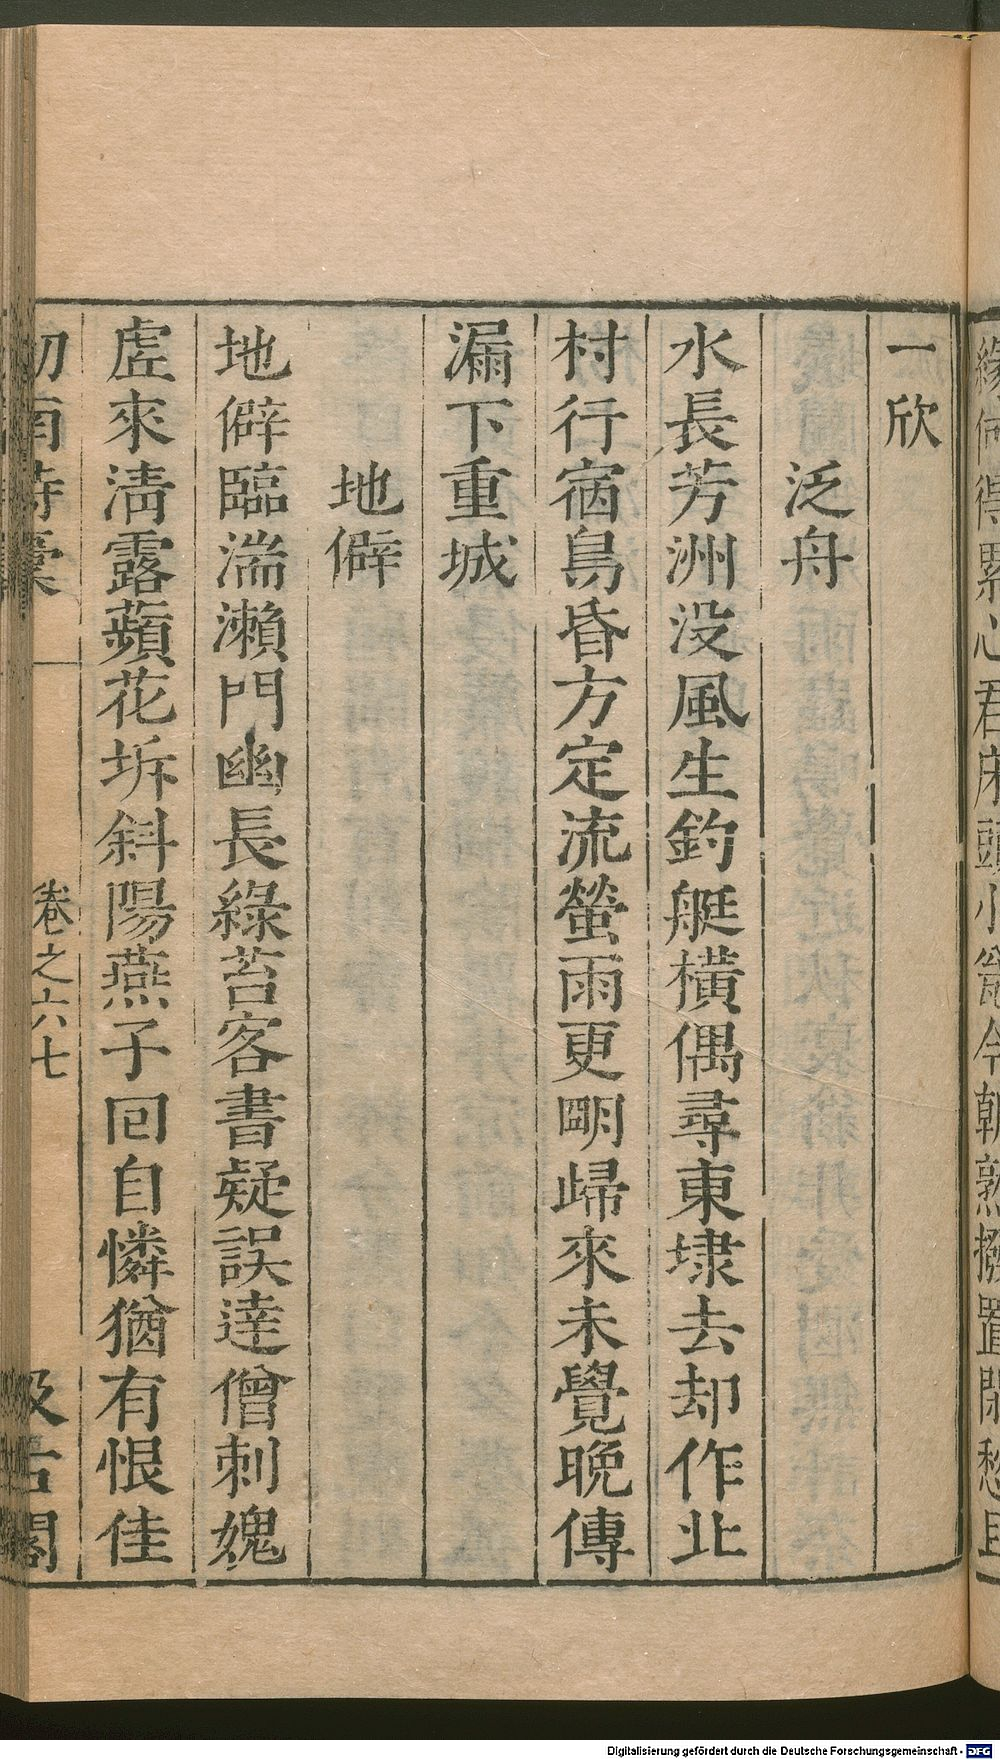 緣何得累心君床頭小甕今朝熟撥置閒愁且
一欣
泛舟
水長芳洲没風生釣艇橫偶尋東埭去却作北
村行宿鳥昏方定流螢雨更明歸來未覺晚傳
漏下重城
地僻
地僻臨湍瀨門幽長綠苔客書疑誤達僧刺媿
虛來清露蘋花坼斜陽燕子回自憐猶有恨佳
劒南詩稾 卷之六七 汲古閣
Digitalisierung gefördert durch die Deutsche Forschungsgemeinschaft - DFG